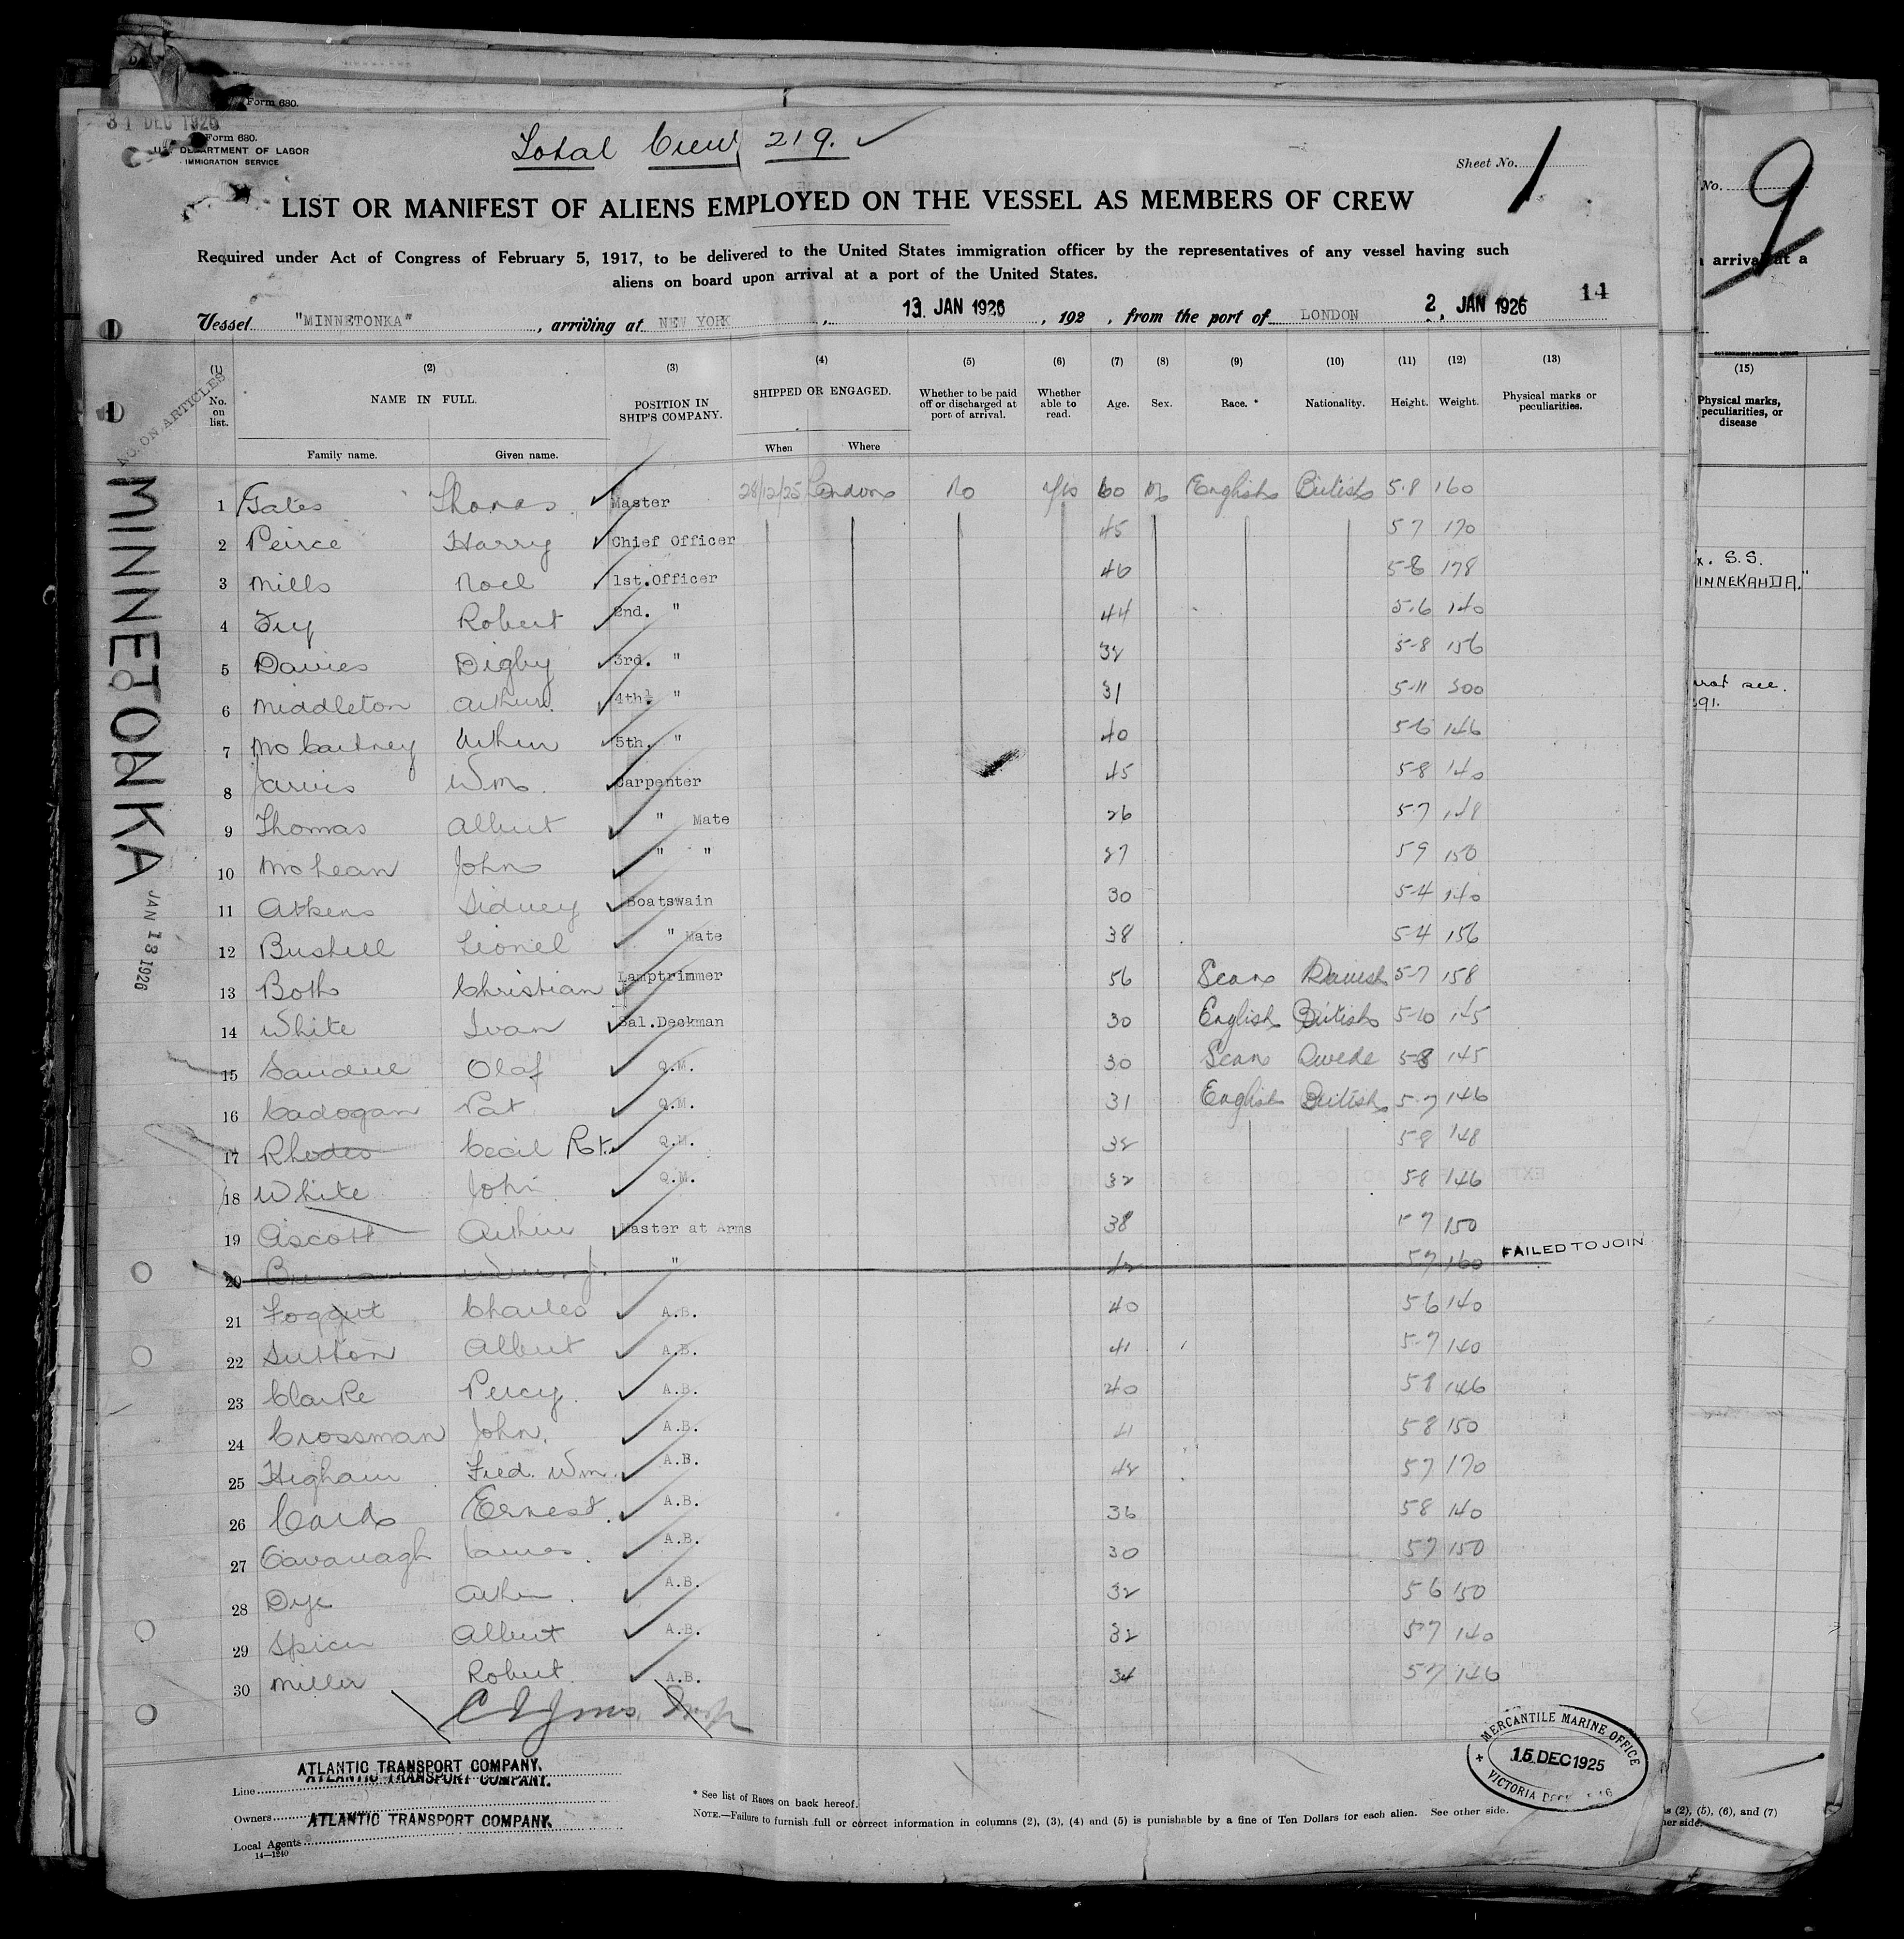 Form 630.
31 DEC 1925
Form 630.
U.S. DEPARTMENT OF LABOR
IMMIGRATION SERVICE
Total Crew 219. ✓
Sheet No. 1
LIST OR MANIFEST OF ALIENS EMPLOYED ON THE VESSEL AS MEMBERS OF CREW
Required under Act of Congress of February 5, 1917, to be delivered to the United States immigration officer by the representatives of any vessel having such
aliens on board upon arrival at a port of the United States.
14
Vessel "MINNETONKA", arriving at NEW YORK, 13 JAN 1926, 192 , from the port of LONDON 2, JAN 1926
(1) (2) (3) (4) (5) (6) (7) (8) (9) (10) (11) (12) (13)
No. on list. NAME IN FULL. POSITION IN SHIP'S COMPANY. SHIPPED OR ENGAGED. Whether to be paid off or discharged at port of arrival. Whether able to read. Age. Sex. Race.* Nationality. Height. Weight. Physical marks or peculiarities.
Family name. Given name. When Where
NO. ON ARTICLES
MINNETONKA
JAN 13 1926
1 Gates Thomas Master 28/12/25 London No Yes 60 M English British 5.8 160
2 Peirce Harry Chief Officer 45 5 7 170
3 Mills Noel 1st. Officer 46 5-8 178
4 Fry Robert 2nd. " 44 5.6 140
5 Davies Digby 3rd. " 32 5-8 156
6 Middleton Arthur 4th. " 31 5-11 200
7 McCartney Arthur 5th. " 40 5-6 146
8 Jarvis Wm. Carpenter 45 5-8 140
9 Thomas Albert " Mate 26 5-7 148
10 McLean John " " 27 5 9 150
11 Atkens Sidney Boatswain 30 5-4 140
12 Bushell Lionel " Mate 38 5-4 156
13 Both Christian Lamptrimmer 56 Scan Danish 5-7 158
14 White Ivan Sal. Deckman 30 English British 5-10 145
15 Olaf Q.M. 30 Scan Swede 5-8 145
16 Cadogan Pat Q.M. 31 English British 5-7 146
17 Rhodes Cecil Rt. Q.M. 32 5-8 148
18 White John Q.M. 32 5-8 146
19 Ascott Arthur Master at Arms 38 5 7 150
20 " 5 7 160 FAILED TO JOIN
21 Charles A.B. 40 5 6 140
22 Sutton Albert A.B. 41 5-7 140
23 Clarke Percy A.B. 40 5 8 146
24 Crossman John. A.B. 41 5 8 150
25 Higham Fred. Wm. A.B. 42 5 7 170
26 Ernest. A.B. 36 5 8 140
27 Cavanagh James A.B. 30 5 7 150
28 Dye Arthur A.B. 32 5 6 150
29 Spicer Albert A.B. 32 5 7 140
30 Miller Robert A.B. 34 5 7 146
Line ATLANTIC TRANSPORT COMPANY.
ATLANTIC TRANSPORT COMPANY.
Owners ATLANTIC TRANSPORT COMPANY.
Local Agents
14—1240
* See list of Races on back hereof.
NOTE.—Failure to furnish full or correct information in columns (2), (3), (4) and (5) is punishable by a fine of Ten Dollars for each alien. See other side.
MERCANTILE MARINE OFFICE
15 DEC 1925
VICTORIA DOCK
No. 9
arrival at a
(15)
Physical marks, peculiarities, or disease
S.S.
INNEKAHDA."
see.
(2), (5), (6), and (7)